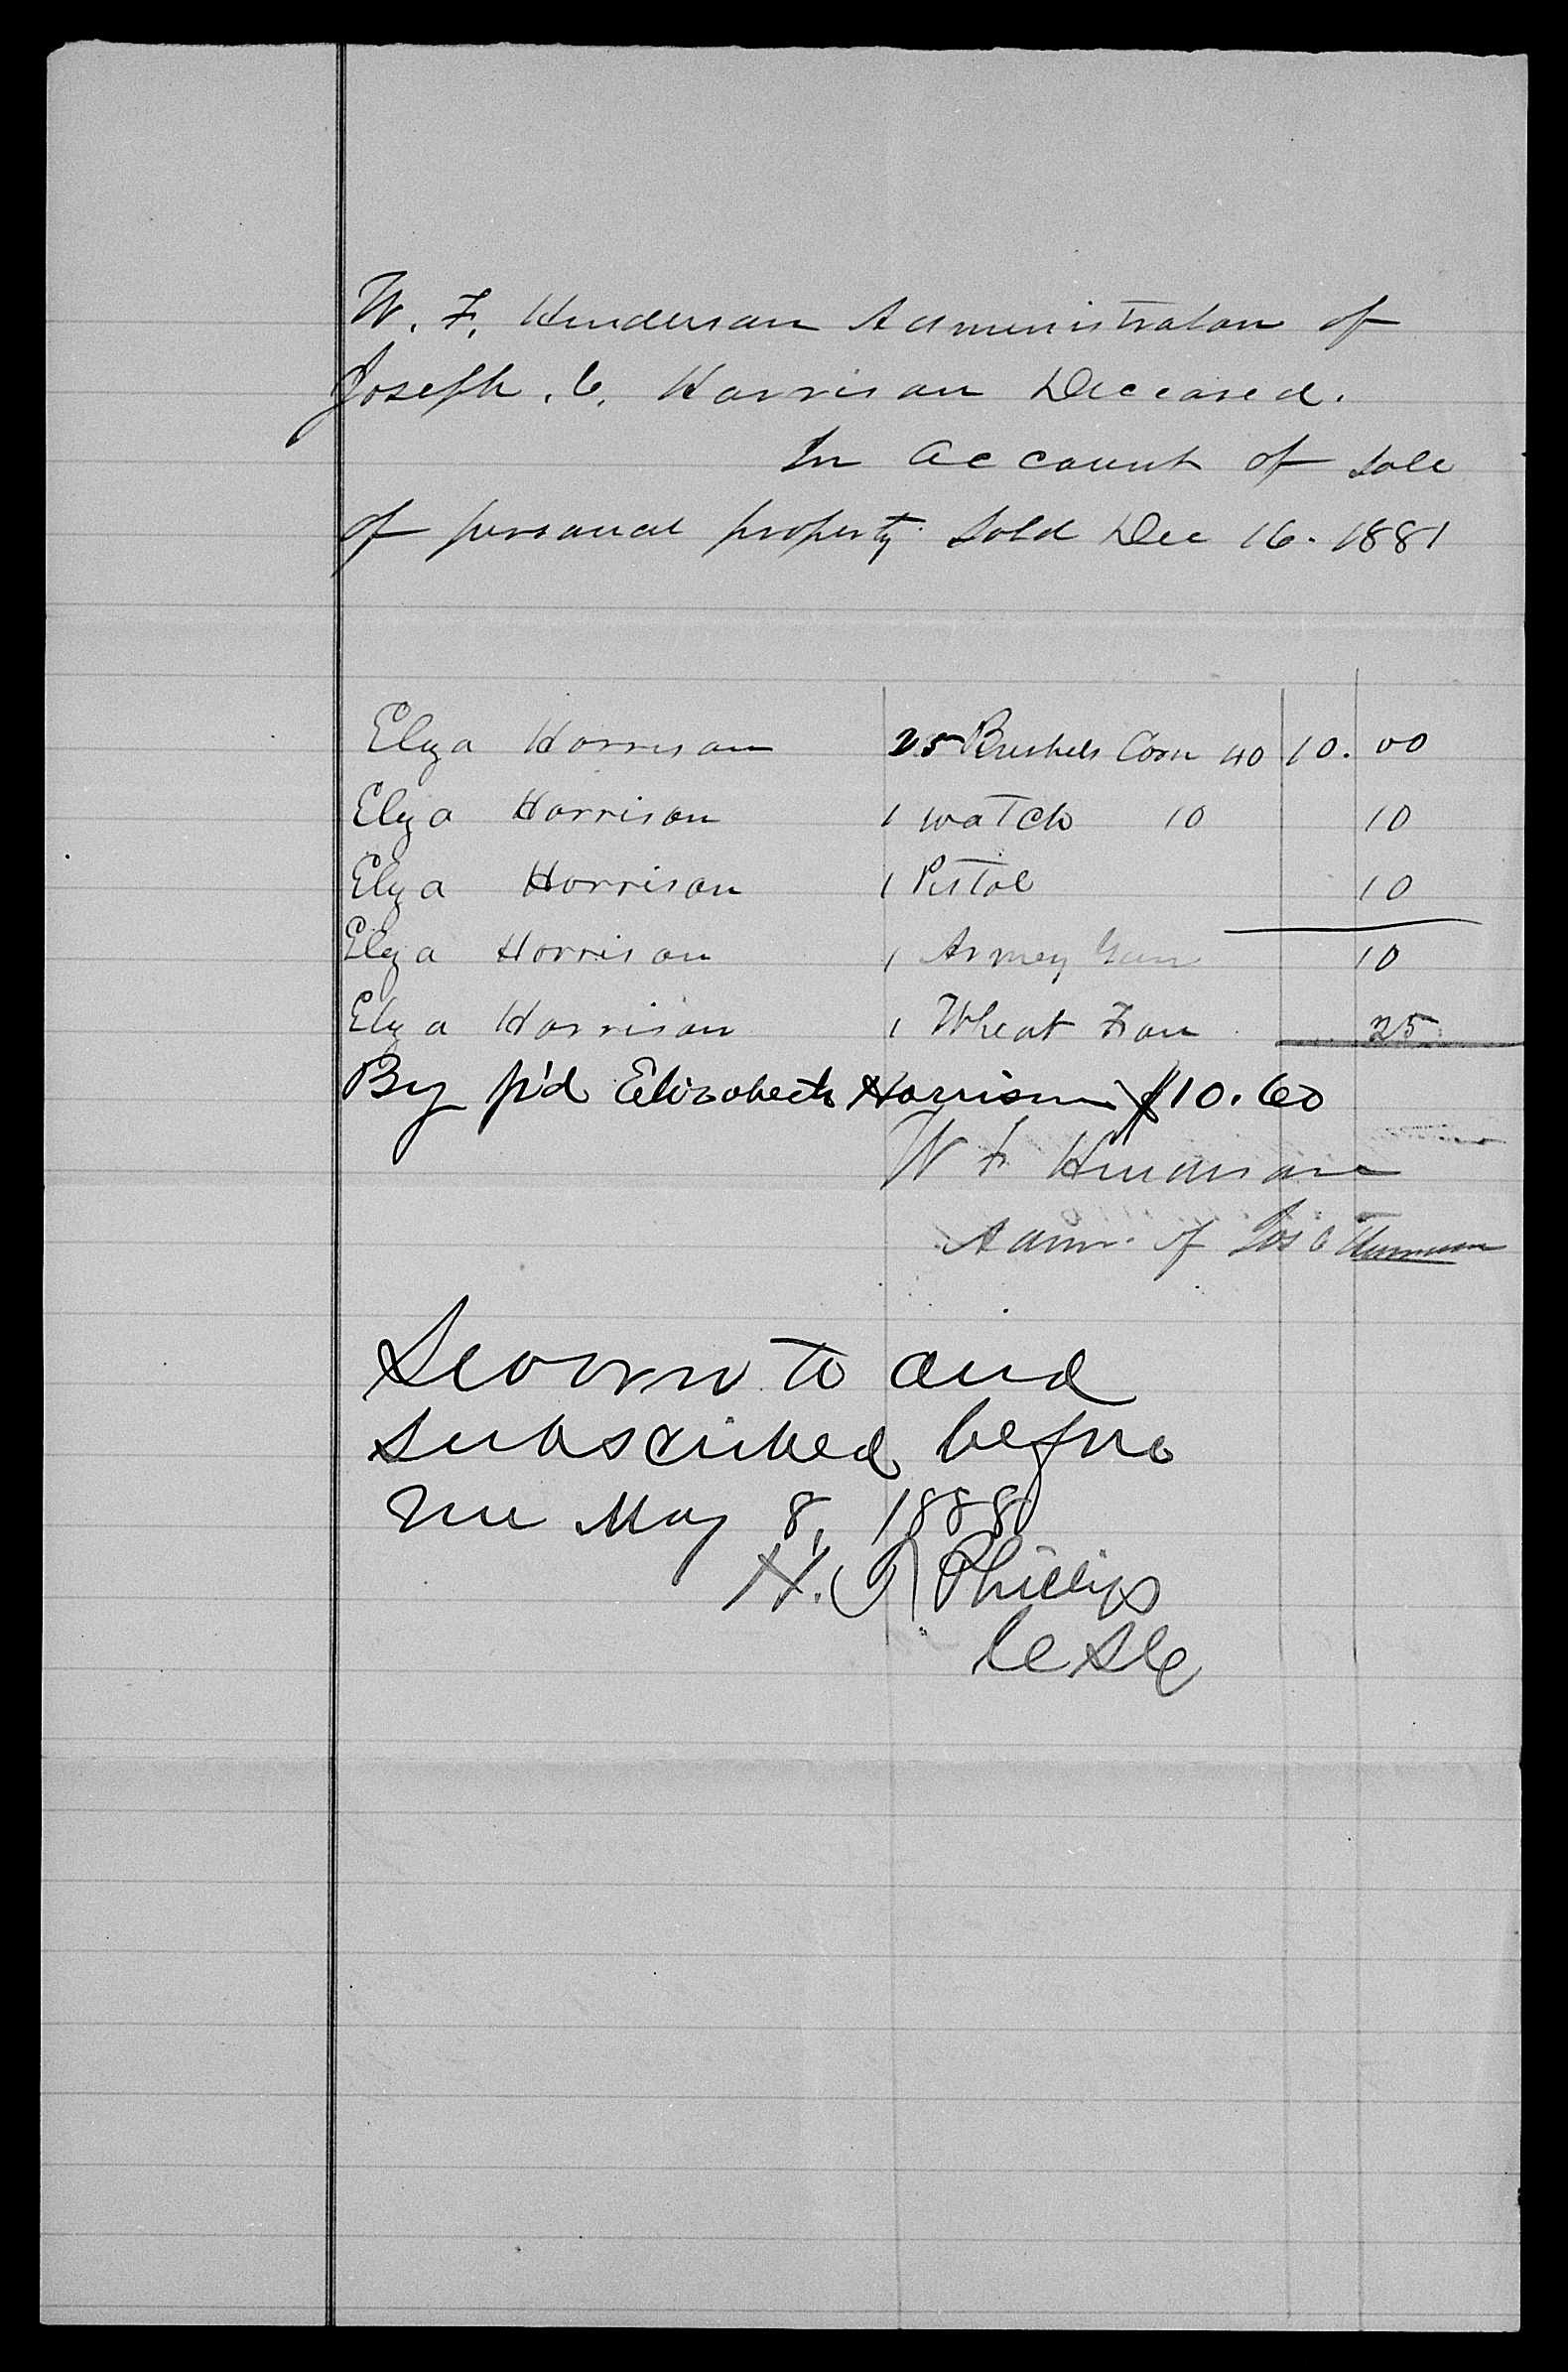 W. F. Henderson Administrator of
Joseph. C. Harrison Deceased.
In account of sale
of personal property sold Dec 16. 1881
Elza Harrison 25 Bushels Corn 40 10. 00
Elza Harrison 1 watch 10 10
Elza Harrison 1 Pistol 10
Elza Harrison 1 Armey Gun 10
Elza Harrison 1 Wheat Fan 25
By p'd Elizabeth Harrison $10.60
W F Henderson
Admr. of Jos C Harrison
Sworn to and
subscribed before
me May 8, 1888
H. Phillips